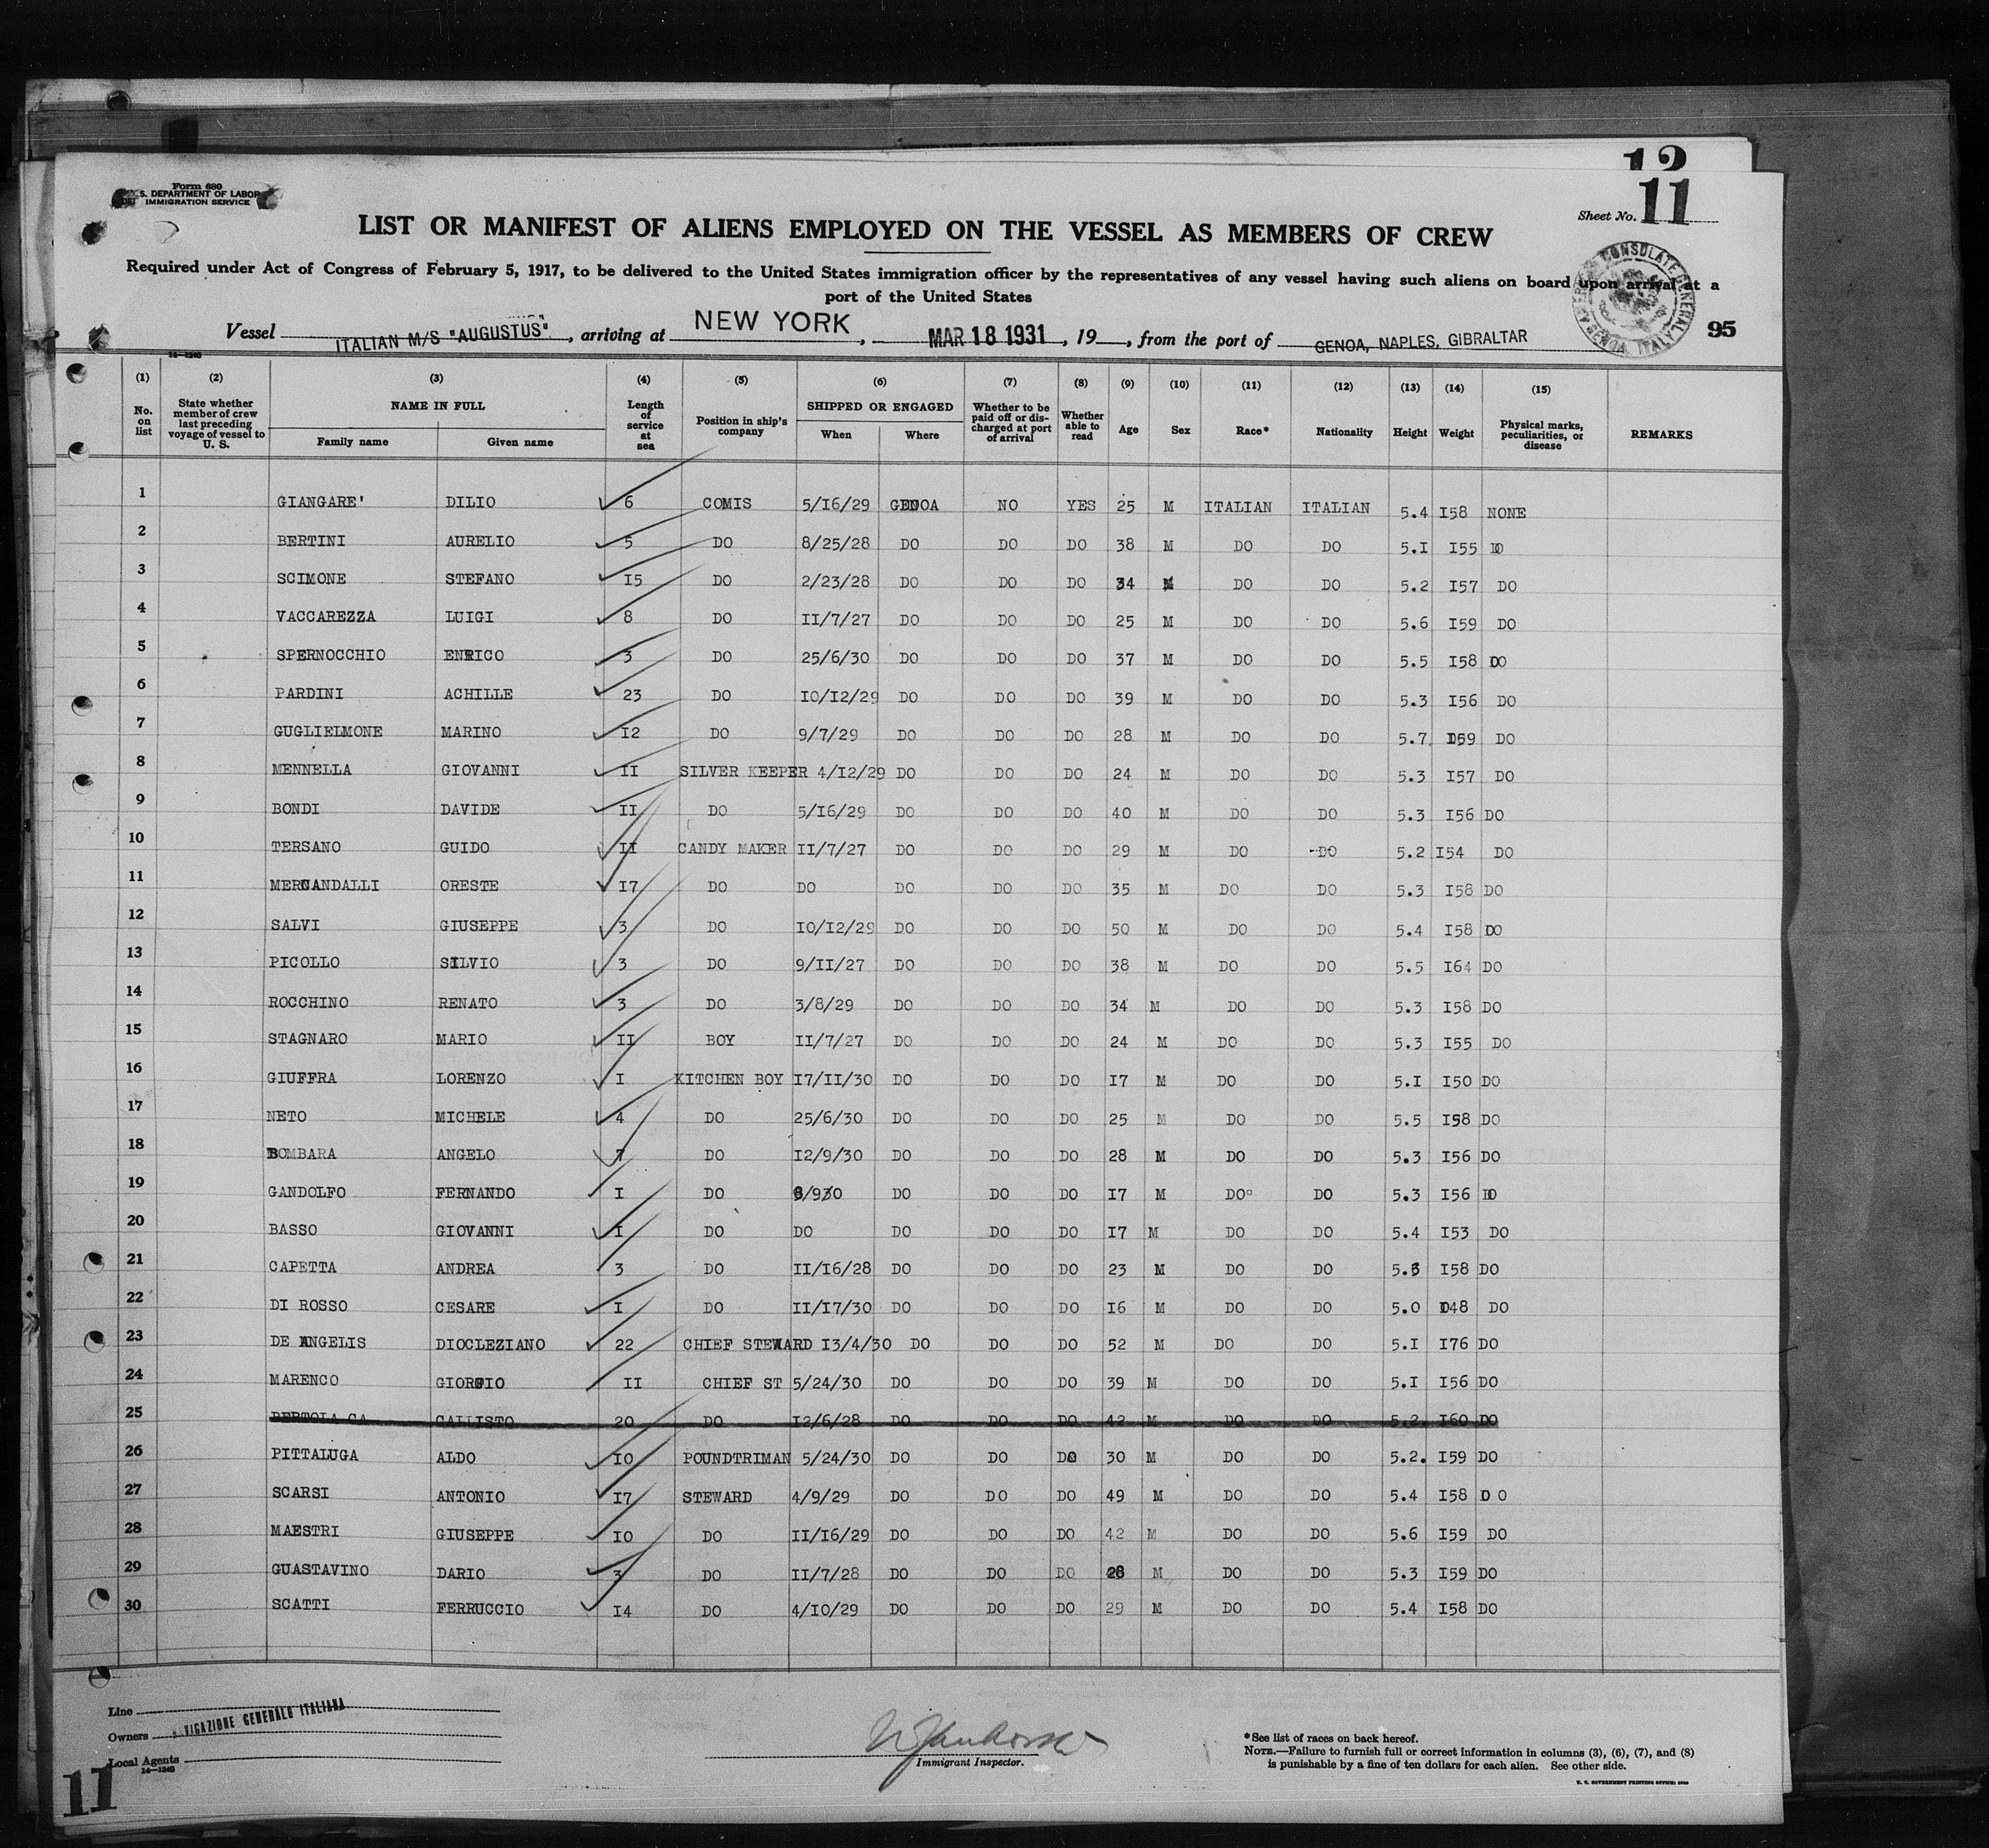 12
Form 680
U. S. DEPARTMENT OF LABOR
IMMIGRATION SERVICE
Sheet No. 11
LIST OR MANIFEST OF ALIENS EMPLOYED ON THE VESSEL AS MEMBERS OF CREW
Required under Act of Congress of February 5, 1917, to be delivered to the United States immigration officer by the representatives of any vessel having such aliens on board upon arrival at a
port of the United States
CONSULATE GENERAL GENOA, ITALY
Vessel ITALIAN M/S "AUGUSTUS", arriving at NEW YORK, MAR 18 1931, 19 , from the port of GENOA, NAPLES, GIBRALTAR 95
14—1240
(1) (2) (3) (4) (5) (6) (7) (8) (9) (10) (11) (12) (13) (14) (15)
No. on list State whether member of crew last preceding voyage of vessel to U. S. NAME IN FULL Family name Given name Length of service at sea Position in ship's company SHIPPED OR ENGAGED When Where Whether to be paid off or discharged at port of arrival Whether able to read Age Sex Race* Nationality Height Weight Physical marks, peculiarities, or disease REMARKS
1 GIANGARE' DILIO 6 COMIS 5/I6/29 GENOA NO YES 25 M ITALIAN ITALIAN 5.4 I58 NONE
2 BERTINI AURELIO 5 DO 8/25/28 DO DO DO 38 M DO DO 5.I I55 DO
3 SCIMONE STEFANO I5 DO 2/23/28 DO DO DO 34 M DO DO 5.2 I57 DO
4 VACCAREZZA LUIGI 8 DO II/7/27 DO DO DO 25 M DO DO 5.6 I59 DO
5 SPERNOCCHIO ENRICO 3 DO 25/6/30 DO DO DO 37 M DO DO 5.5 I58 DO
6 PARDINI ACHILLE 23 DO IO/I2/29 DO DO DO 39 M DO DO 5.3 I56 DO
7 GUGLIELMONE MARINO I2 DO 9/7/29 DO DO DO 28 M DO DO 5.7 I59 DO
8 MENNELLA GIOVANNI II SILVER KEEPER 4/I2/29 DO DO DO 24 M DO DO 5.3 I57 DO
9 BONDI DAVIDE II DO 5/I6/29 DO DO DO 40 M DO DO 5.3 I56 DO
10 TERSANO GUIDO II CANDY MAKER II/7/27 DO DO DO 29 M DO DO 5.2 I54 DO
11 MERCANDALLI ORESTE I7 DO DO DO DO DO 35 M DO DO 5.3 I58 DO
12 SALVI GIUSEPPE 3 DO IO/I2/29 DO DO DO 50 M DO DO 5.4 I58 DO
13 PICOLLO SILVIO 3 DO 9/II/27 DO DO DO 38 M DO DO 5.5 I64 DO
14 ROCCHINO RENATO 3 DO 3/8/29 DO DO DO 34 M DO DO 5.3 I58 DO
15 STAGNARO MARIO II BOY II/7/27 DO DO DO 24 M DO DO 5.3 I55 DO
16 GIUFFRA LORENZO I KITCHEN BOY I7/II/30 DO DO DO I7 M DO DO 5.I I50 DO
17 NETO MICHELE 4 DO 25/6/30 DO DO DO 25 M DO DO 5.5 I58 DO
18 BOMBARA ANGELO 7 DO I2/9/30 DO DO DO 28 M DO DO 5.3 I56 DO
19 GANDOLFO FERNANDO I DO DO DO DO I7 M DO DO 5.3 I56 DO
20 BASSO GIOVANNI I DO DO DO DO DO I7 M DO DO 5.4 I53 DO
21 CAPETTA ANDREA 3 DO II/I6/28 DO DO DO 23 M DO DO 5.3 I58 DO
22 DI ROSSO CESARE I DO II/I7/30 DO DO DO I6 M DO DO 5.0 I48 DO
23 DE ANGELIS DIOCLEZIANO 22 CHIEF STEWARD I3/4/30 DO DO DO 52 M DO DO 5.I I76 DO
24 MARENCO GIORGIO II CHIEF ST 5/24/30 DO DO DO 39 M DO DO 5.I I56 DO
25 BERTOLA CA CALLISTO 20 DO I2/6/28 DO DO DO 42 M DO DO 5.2 I60 DO
26 PITTALUGA ALDO IO POUNDTRIMAN 5/24/30 DO DO DO 30 M DO DO 5.2. I59 DO
27 SCARSI ANTONIO I7 STEWARD 4/9/29 DO DO DO 49 M DO DO 5.4 I58 D O
28 MAESTRI GIUSEPPE IO DO II/I6/29 DO DO DO 42 M DO DO 5.6 I59 DO
29 GUASTAVINO DARIO 3 DO II/7/28 DO DO DO 28 M DO DO 5.3 I59 DO
30 SCATTI FERRUCCIO I4 DO 4/IO/29 DO DO DO 29 M DO DO 5.4 I58 DO
Line
Owners NAVIGAZIONE GENERALE ITALIANA
Local Agents
14—1240
11
Immigrant Inspector.
*See list of races on back hereof.
NOTE.—Failure to furnish full or correct information in columns (3), (6), (7), and (8)
is punishable by a fine of ten dollars for each alien. See other side.
U. S. GOVERNMENT PRINTING OFFICE: 1930